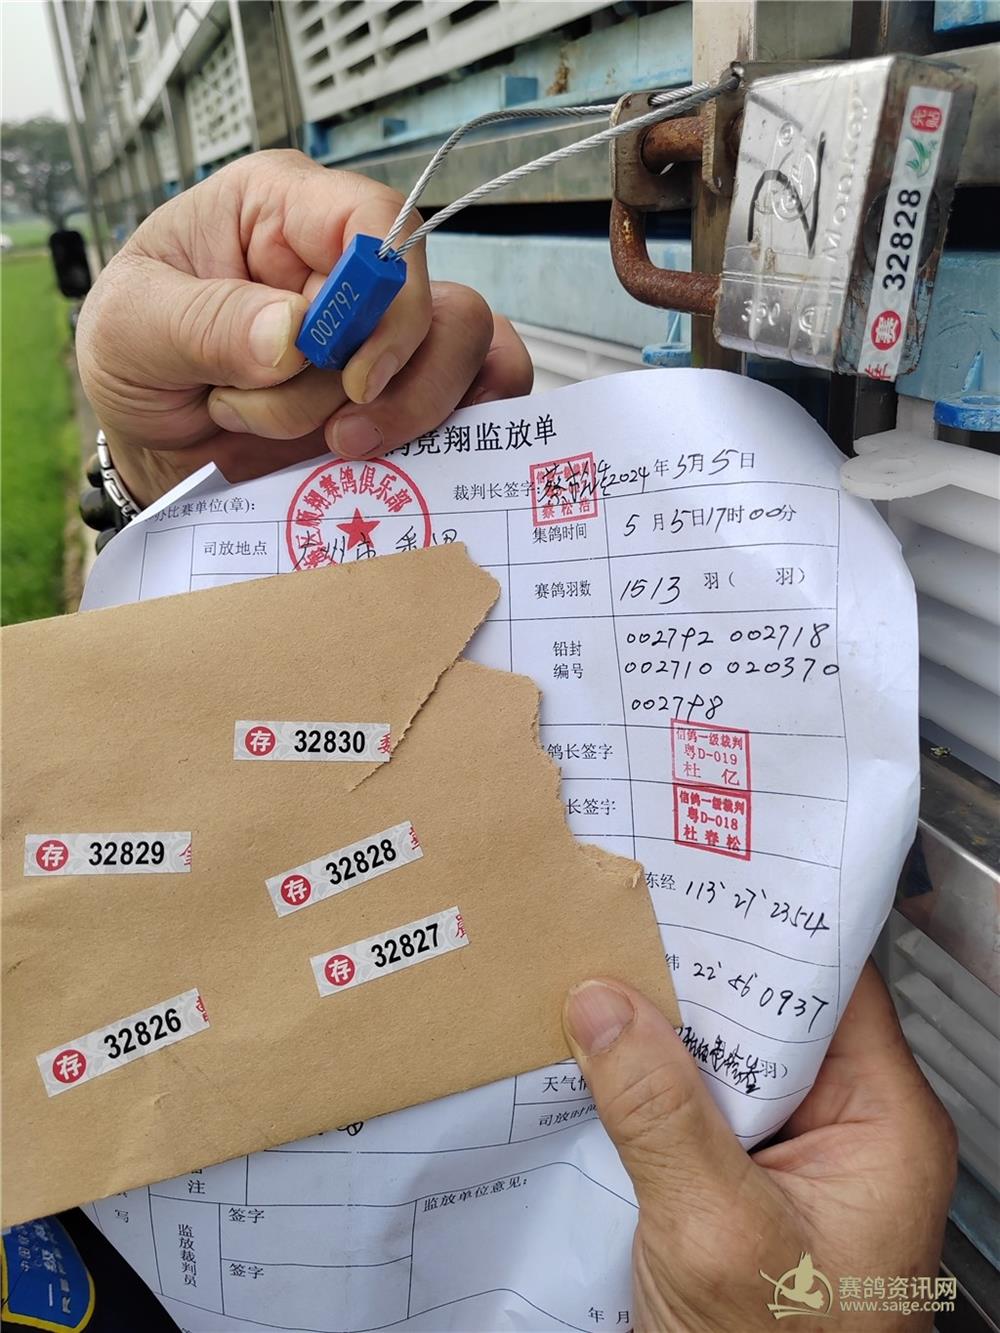 2
Mandrew
350
光临
32828
赛
002792
鸽竞翔监放单
裁判长签字:
2024年5月5日
办比赛单位(章):
翔赛鸽俱乐部
蔡松浩
司放地点
广州市
集鸽时间
5月5日17时00分
赛鸽羽数
1513 羽( 羽)
铅封
编号
002792 002718
002710 020370
002798
鸽长签字
信鸽一级裁判
粤D-019
杜 亿
长签字
信鸽一级裁判
粤D-018
杜春松
东经
113° 27' 2354
纬
22° 56' 0937
羽)
天气情
司放时间
存 32830
存 32829
存 32828
存 32827
存 32826
注
写
监放裁判员
签字
签字
监放单位意见:
年 月
一级
赛鸽资讯网
www.saige.com